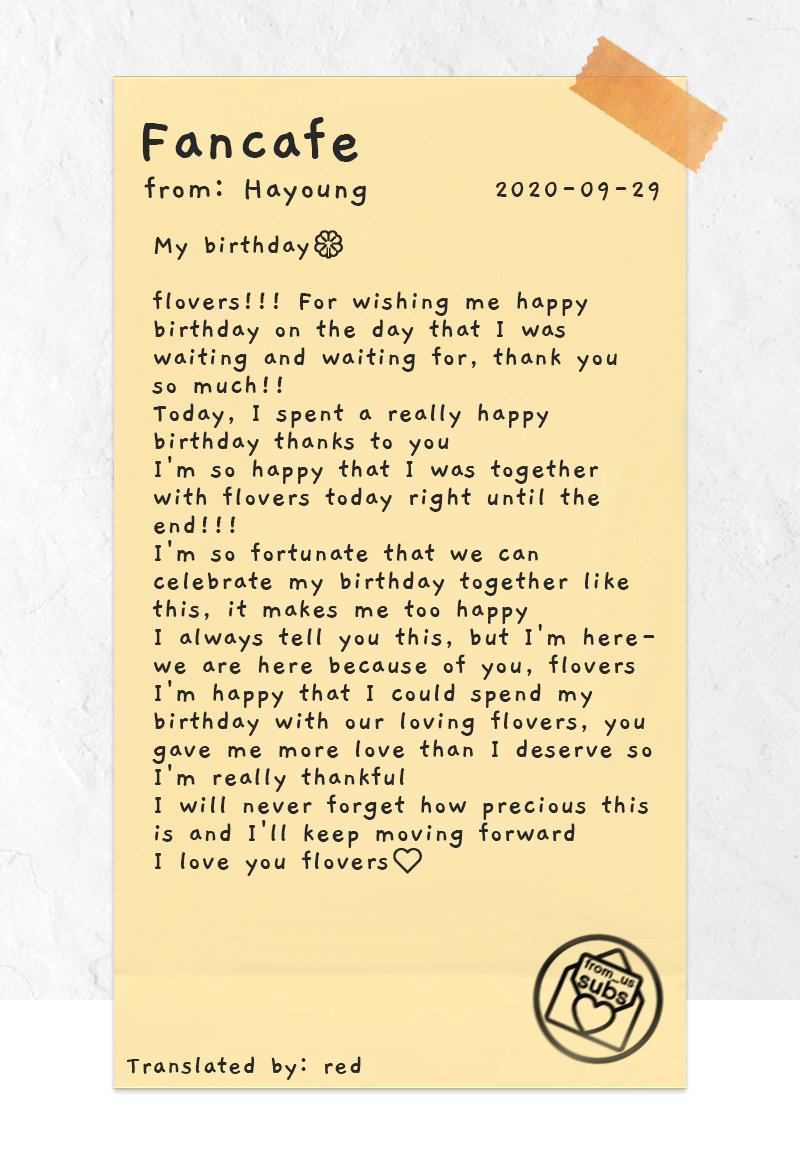 Fancafe
from: Hayoung 2020-09-29
My birthday
flovers!!! For wishing me happy
birthday on the day that I was
waiting and waiting for, thank you
so much!!
Today, I spent a really happy
birthday thanks to you
I'm so happy that I was together
with flovers today right until the
end!!!
I'm so fortunate that we can
celebrate my birthday together like
this, it makes me too happy
I always tell you this, but I'm here-
we are here because of you, flovers
I'm happy that I could spend my
birthday with our loving flovers, you
gave me more love than I deserve so
I'm really thankful
I will never forget how precious this
is and I'll keep moving forward
I love you flovers♡
from_us
subs
Translated by: red